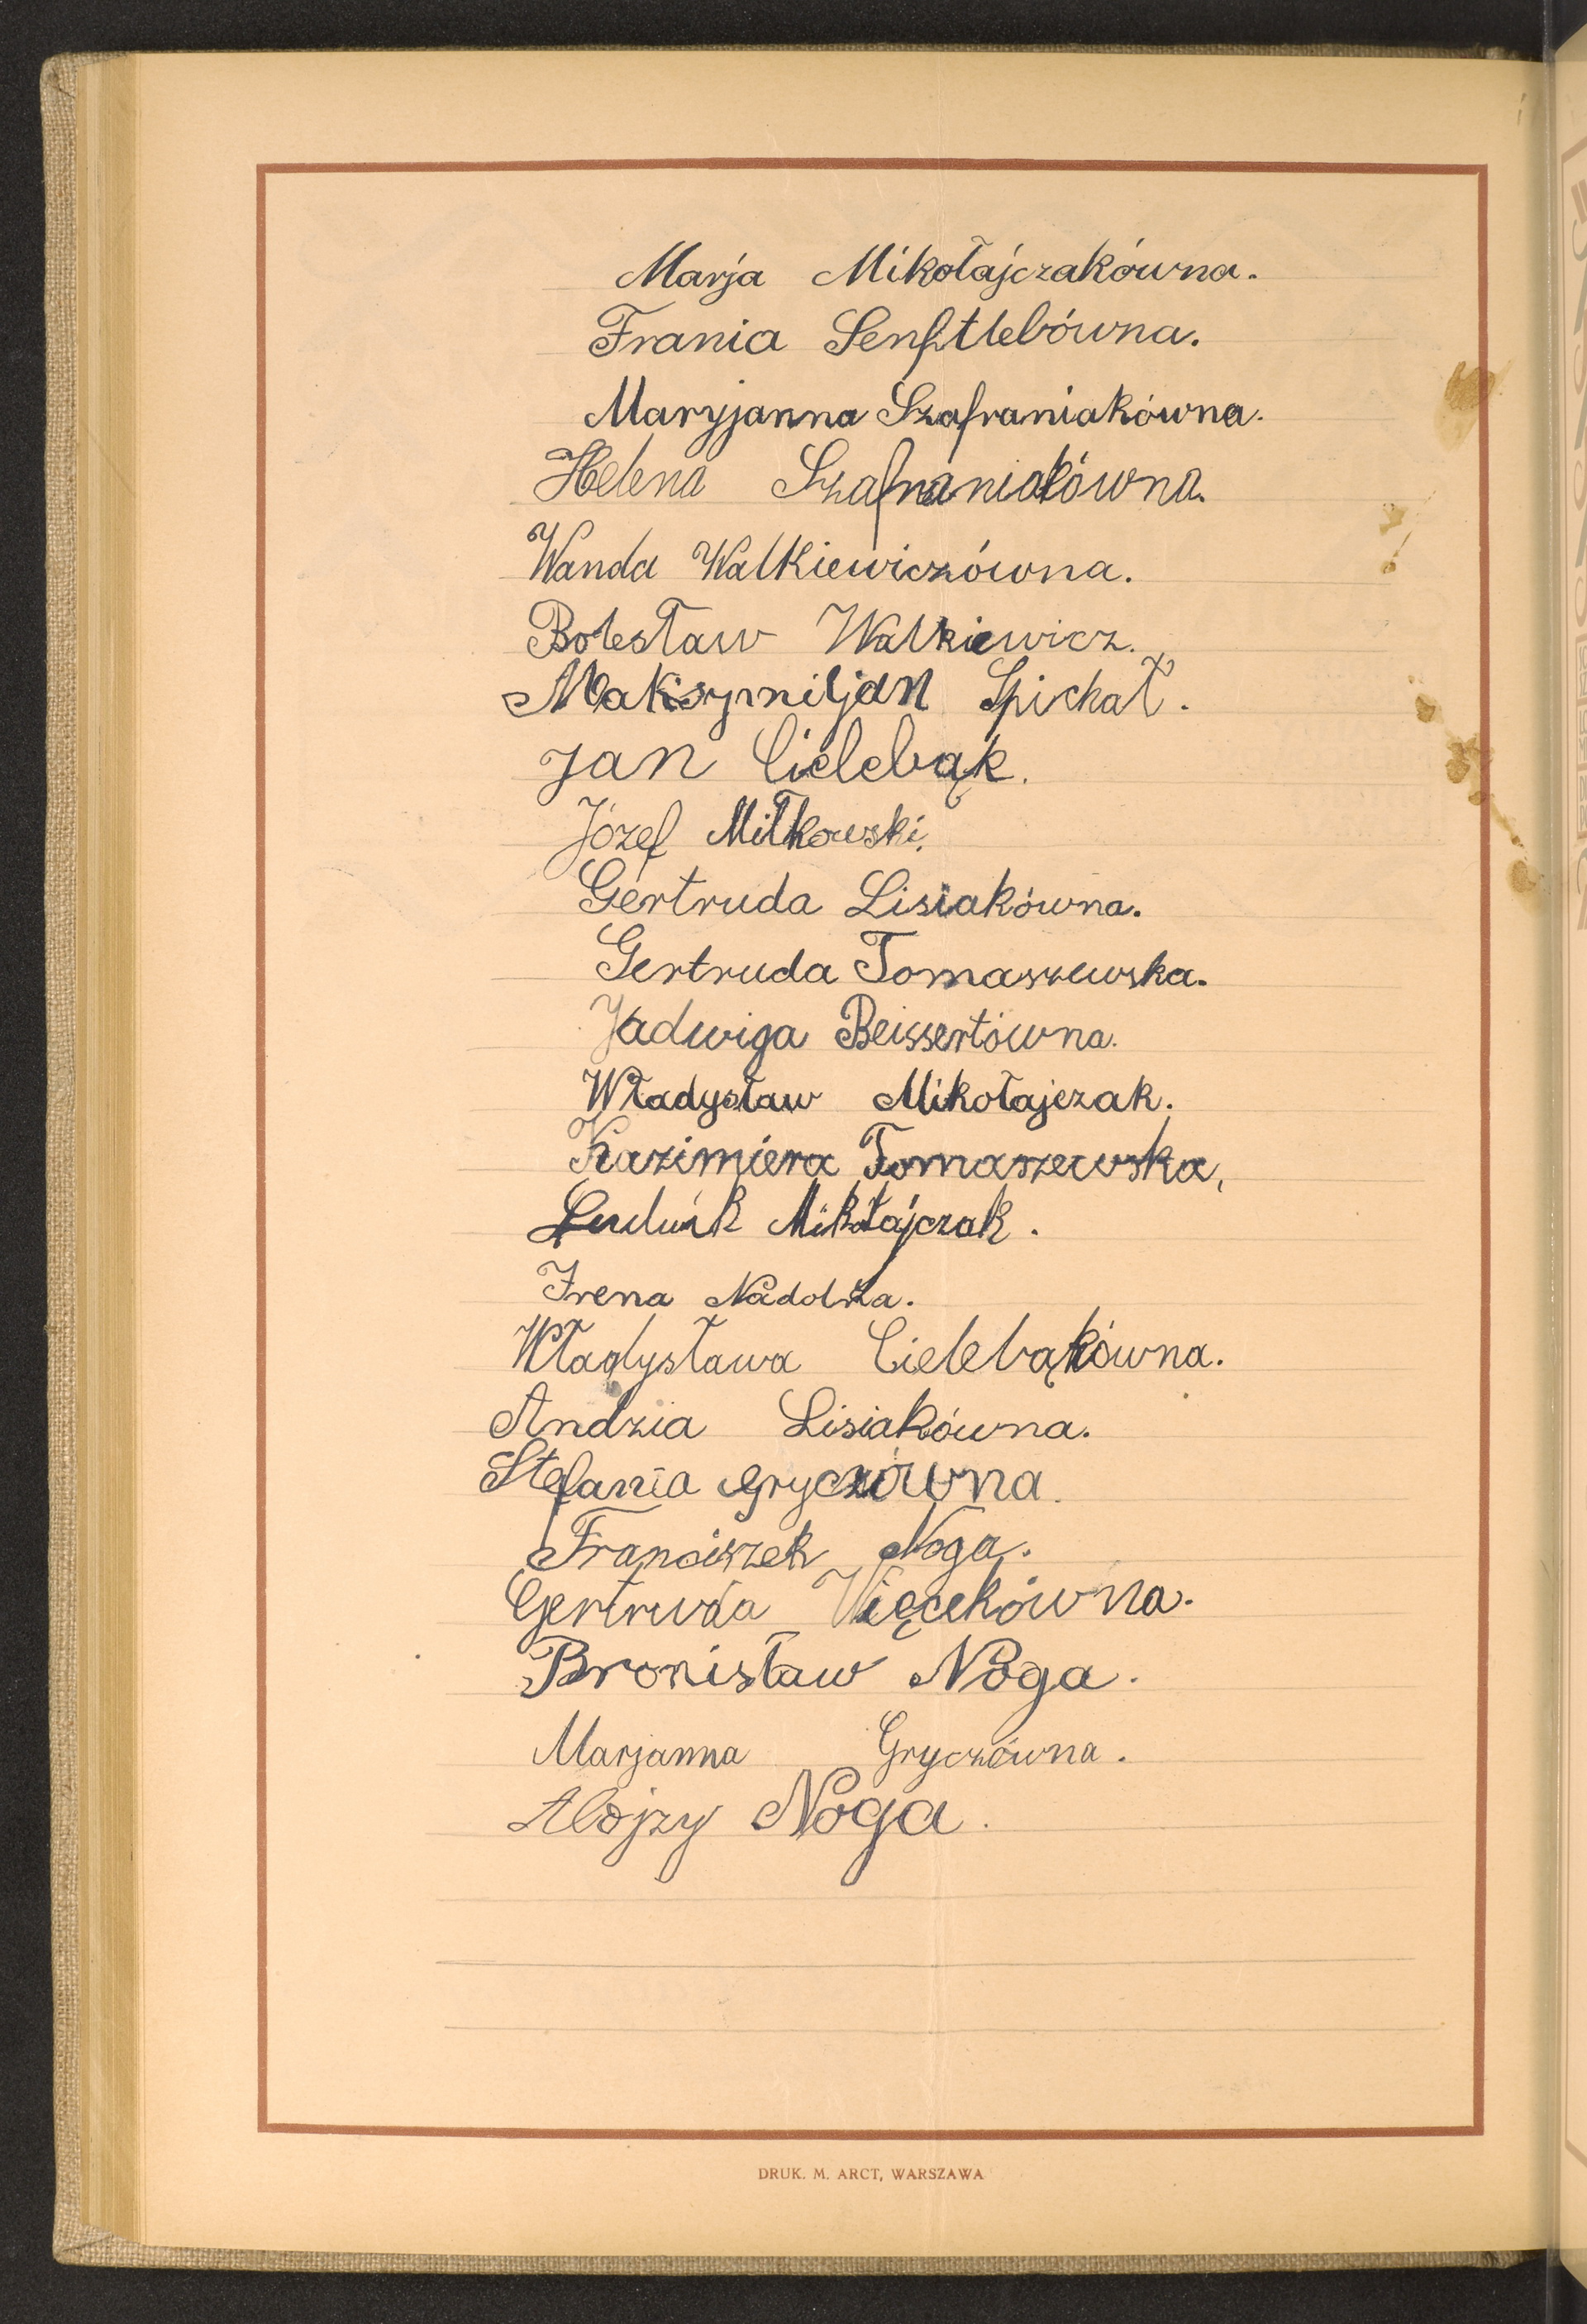 Marja Mikołajczakówna.
Frania Senftlebówna.
Maryjanna Szafraniakówna.
Helena Szafraniakówna.
Wanda Walkiewiczówna.
Bolesław Walkiewicz.
Maksymiljan Spichał.
Jan Cielebąk.
Józef Miłkowski.
Gertruda Lisiakówna.
Gertruda Tomaszewska.
Jadwiga Beissertówna.
Władysław Mikołajczak.
Kazimiera Tomaszewska,
Ludwik Mikołajczak.
Irena Nadolna.
Władysława Cielebąkówna.
Andzia Lisiakówna.
Stefania Gryczówna.
Franciszek Noga.
Gertruda Więcekówna.
Bronisław Noga.
Marjanna Gryczówna.
Alojzy Noga.
DRUK. M. ARCT, WARSZAWA